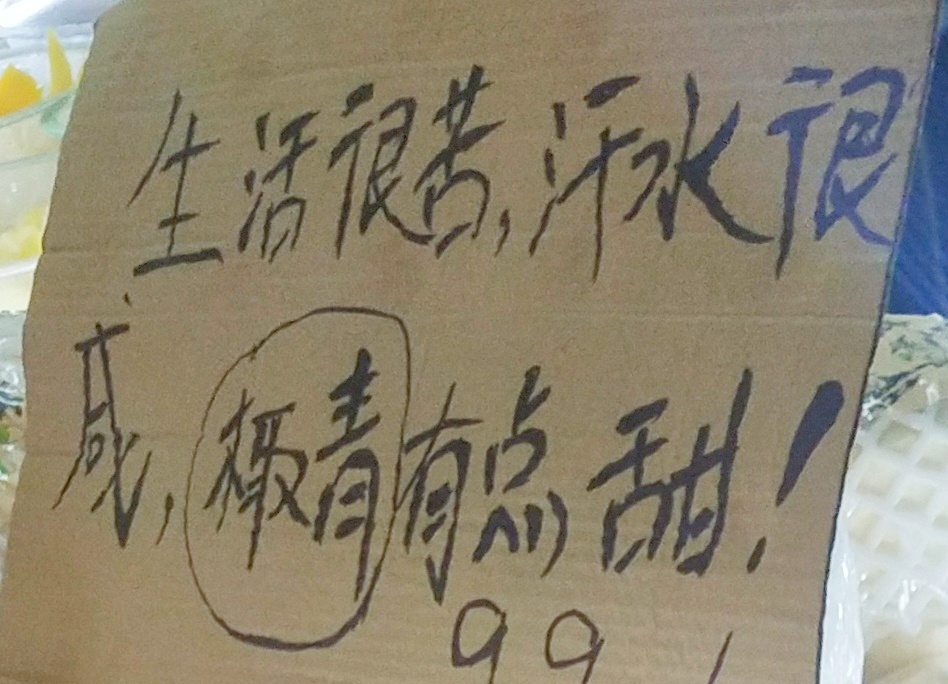 生活很苦,汗水很
咸,椰青有点甜!
99